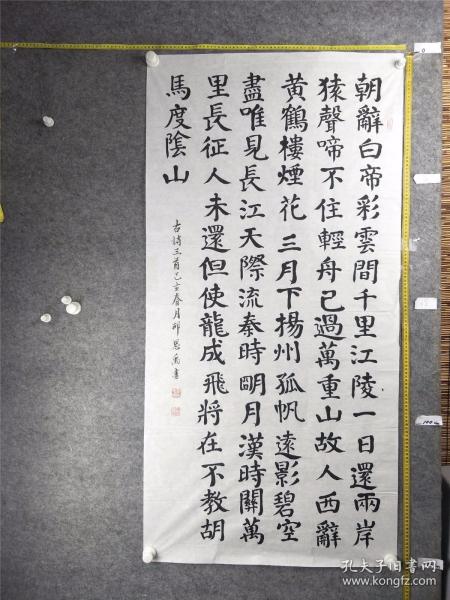 朝辭白帝彩雲間千里江陵一日還兩岸
猿聲啼不住輕舟已過萬重山故人西辭
黄鶴樓煙花三月下揚州孤帆遠影碧空
盡唯見長江天際流秦時明月漢時關萬
里長征人未還但使龍成飛將在不教胡
馬度陰山
古詩三首己亥春月書
孔夫子旧书网
www.kongfz.com